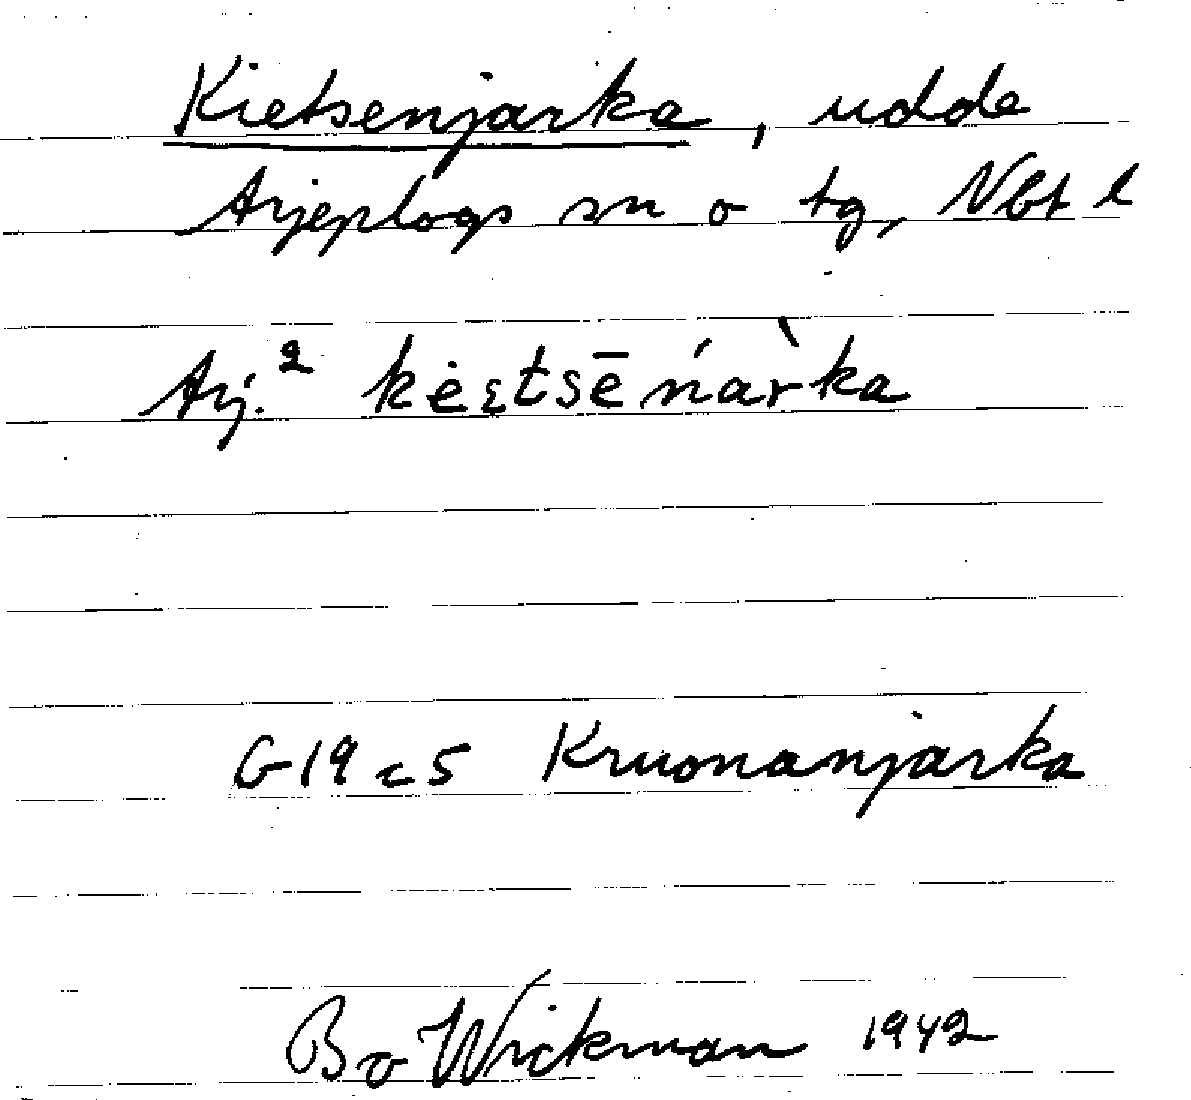 Kietsenjarka, udde
Arjeplogs sn o tg, Nbt l
Arj.² kėɛtsē ńàr̀ka
G19c5 Kruonanjarka
Bo Wickman 1942